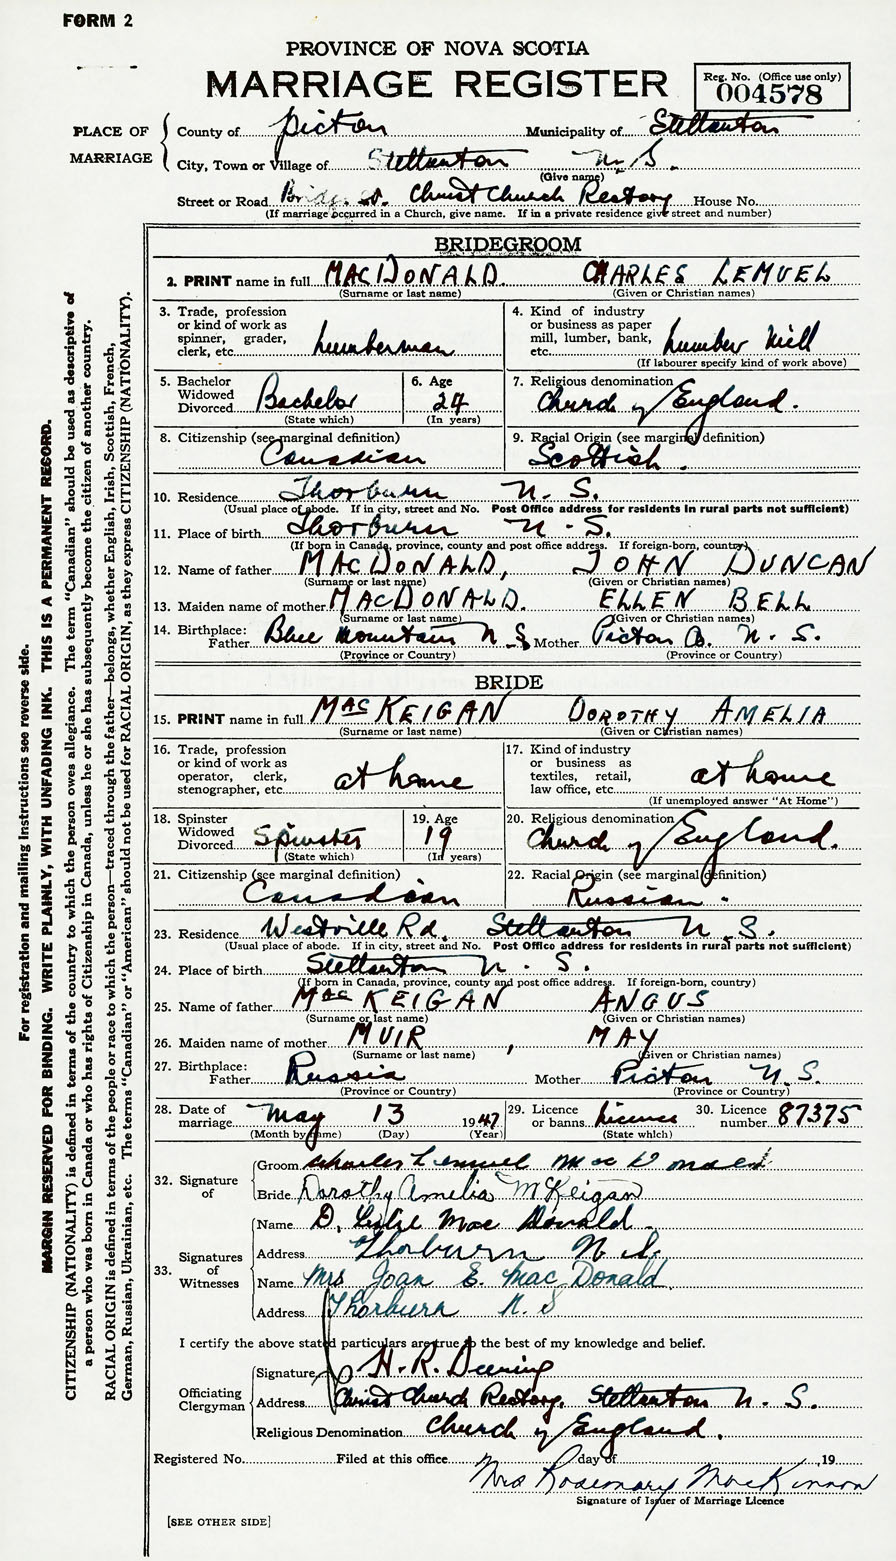 FORM 2
PROVINCE OF NOVA SCOTIA
MARRIAGE REGISTER
Reg. No. (Office use only)
004578
PLACE OF MARRIAGE
County of Picton Municipality of Stellarton
City, Town or Village of Stellarton N. S.
(Give name)
Street or Road Bridge St. Christ Church Rectory House No.
(If marriage occurred in a Church, give name. If in a private residence give street and number)
BRIDEGROOM
2. PRINT name in full MACDONALD. CHARLES LEMUEL
(Surname or last name) (Given or Christian names)
3. Trade, profession or kind of work as spinner, grader, clerk, etc. Lumberman
4. Kind of industry or business as paper mill, lumber, bank, etc. Lumber Mill
(If labourer specify kind of work above)
5. Bachelor Widowed Divorced Bachelor
(State which)
6. Age 24
(In years)
7. Religious denomination Church of England.
8. Citizenship (see marginal definition) Canadian
9. Racial Origin (see marginal definition) Scottish.
10. Residence Thorburn N. S.
(Usual place of abode. If in city, street and No. Post Office address for residents in rural parts not sufficient)
11. Place of birth Thorburn N. S.
(If born in Canada, province, county and post office address. If foreign-born, country)
12. Name of father MACDONALD, JOHN DUNCAN
(Surname or last name) (Given or Christian names)
13. Maiden name of mother MACDONALD. ELLEN BELL
(Surname or last name) (Given or Christian names)
14. Birthplace: Father Blue Mountain N. S. Mother Picton Co. N. S.
(Province or Country) (Province or Country)
BRIDE
15. PRINT name in full MACKEIGAN DOROTHY AMELIA
(Surname or last name) (Given or Christian names)
16. Trade, profession or kind of work as operator, clerk, stenographer, etc. at home
17. Kind of industry or business as textiles, retail, law office, etc. at home
(If unemployed answer "At Home")
18. Spinster Widowed Divorced Spinster
(State which)
19. Age 19
(In years)
20. Religious denomination Church of England.
21. Citizenship (see marginal definition) Canadian
22. Racial Origin (see marginal definition) Russian.
23. Residence Westville Rd. Stellarton N. S.
(Usual place of abode. If in city, street and No. Post Office address for residents in rural parts not sufficient)
24. Place of birth Stellarton N. S.
(If born in Canada, province, county and post office address. If foreign-born, country)
25. Name of father MACKEIGAN ANGUS
(Surname or last name) (Given or Christian names)
26. Maiden name of mother MUIR, MAY
(Surname or last name) (Given or Christian names)
27. Birthplace: Father Russia Mother Picton N. S.
(Province or Country) (Province or Country)
28. Date of marriage May 13 1947
(Month by name) (Day) (Year)
29. Licence or banns. Licence
(State which)
30. Licence number 87375
32. Signature of
Groom Charles Lemuel MacDonald
Bride Dorothy Amelia McKeigan
33. Signatures of Witnesses
Name D. Leslie MacDonald.
Address Thorburn N. S.
Name Mrs Joan E. MacDonald.
Address Thorburn N. S
I certify the above stated particulars are true to the best of my knowledge and belief.
Officiating Clergyman
Signature H. R. Deering
Address Christ Church Rectory. Stellarton N. S.
Religious Denomination Church of England.
Registered No. Filed at this office day of , 19
Mrs Rosemary MacKinnon
Signature of Issuer of Marriage Licence
[SEE OTHER SIDE]
For registration and mailing instructions see reverse side.
MARGIN RESERVED FOR BINDING. WRITE PLAINLY, WITH UNFADING INK. THIS IS A PERMANENT RECORD.
CITIZENSHIP (NATIONALITY) is defined in terms of the country to which the person owes allegiance. The term "Canadian" should be used as descriptive of
a person who was born in Canada or who has rights of Citizenship in Canada, unless he or she has subsequently become the citizen of another country.
RACIAL ORIGIN is defined in terms of the people or race to which the person—traced through the father—belongs, whether English, Irish, Scottish, French,
German, Russian, Ukrainian, etc. The terms "Canadian" or "American" should not be used for RACIAL ORIGIN, as they express CITIZENSHIP (NATIONALITY).